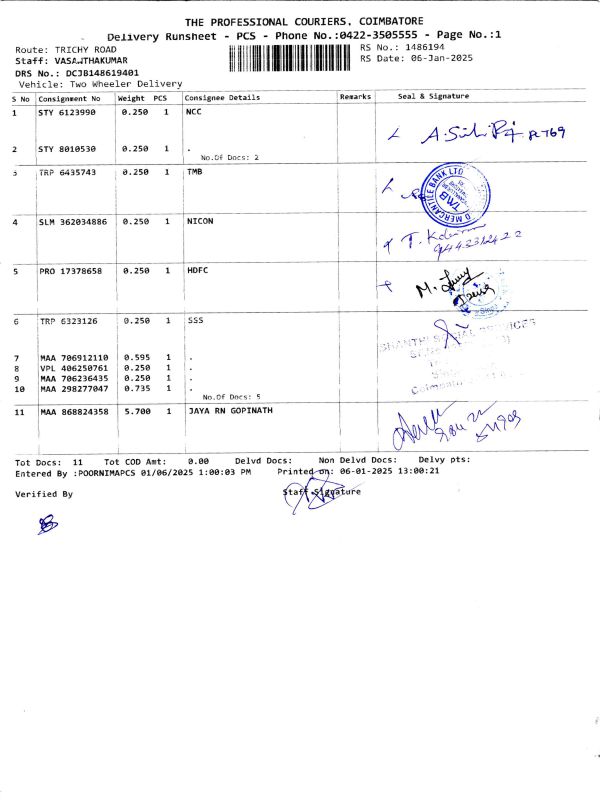 THE PROFESSIONAL COURIERS, COIMBATORE
Delivery Runsheet - PCS - Phone No.:0422-3505555 - Page No.:1
Route: TRICHY ROAD
RS No.: 1486194
Staff: VASANTHAKUMAR
RS Date: 06-Jan-2025
DRS No.: DCJB148619401
Vehicle: Two Wheeler Delivery
S No Consignment No Weight PCS Consignee Details Remarks Seal & Signature
1 STY 6123990 0.250 1 NCC
2 STY 8010530 0.250 1 .
No.Of Docs: 2
3 TRP 6435743 0.250 1 TMB
MERCANTILE BANK LTD
TMB
4 SLM 362034886 0.250 1 NICON
5 PRO 17378658 0.250 1 HDFC
6 TRP 6323126 0.250 1 SSS
SHANTHI SOCIAL SERVICES
7 MAA 706912110 0.595 1 .
8 VPL 406250761 0.250 1 .
9 MAA 706236435 0.250 1 .
10 MAA 298277047 0.735 1 .
No.Of Docs: 5
11 MAA 868824358 5.700 1 JAYA RN GOPINATH
Tot Docs: 11 Tot COD Amt: 0.00 Delvd Docs: Non Delvd Docs: Delvy pts:
Entered By :POORNIMAPCS 01/06/2025 1:00:03 PM Printed on: 06-01-2025 13:00:21
Verified By
Staff Signature